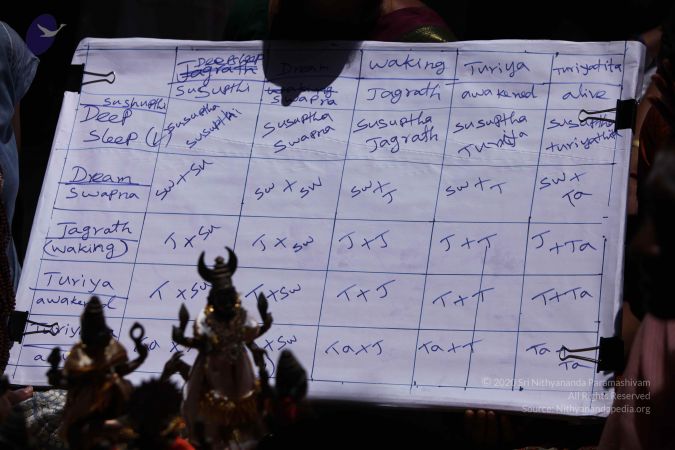 Deep sleep Dream waking Turiya Turiyatita
Sususpthi swapna Jagrath awakened alive
sushupthi
Deep
Sleep (L) Susuptha Susuptha Susuptha Susuptha Susuptha
Susupthi Swapna Jagrath Turiyathita
Dream
Swapna Sw x Su Sw x Sw Sw x J Sw x T Sw x Ta
Jagrath
(waking) J x Su J x Sw J x J J x T J x Ta
Turiya
awakened T x Su T x Sw T x J T x T T x Ta
Ta x J Ta x T Ta
Ta
© 2020 Sri Nithyananda Paramashivam
All Rights Reserved
Source: Nithyanandapedia.org